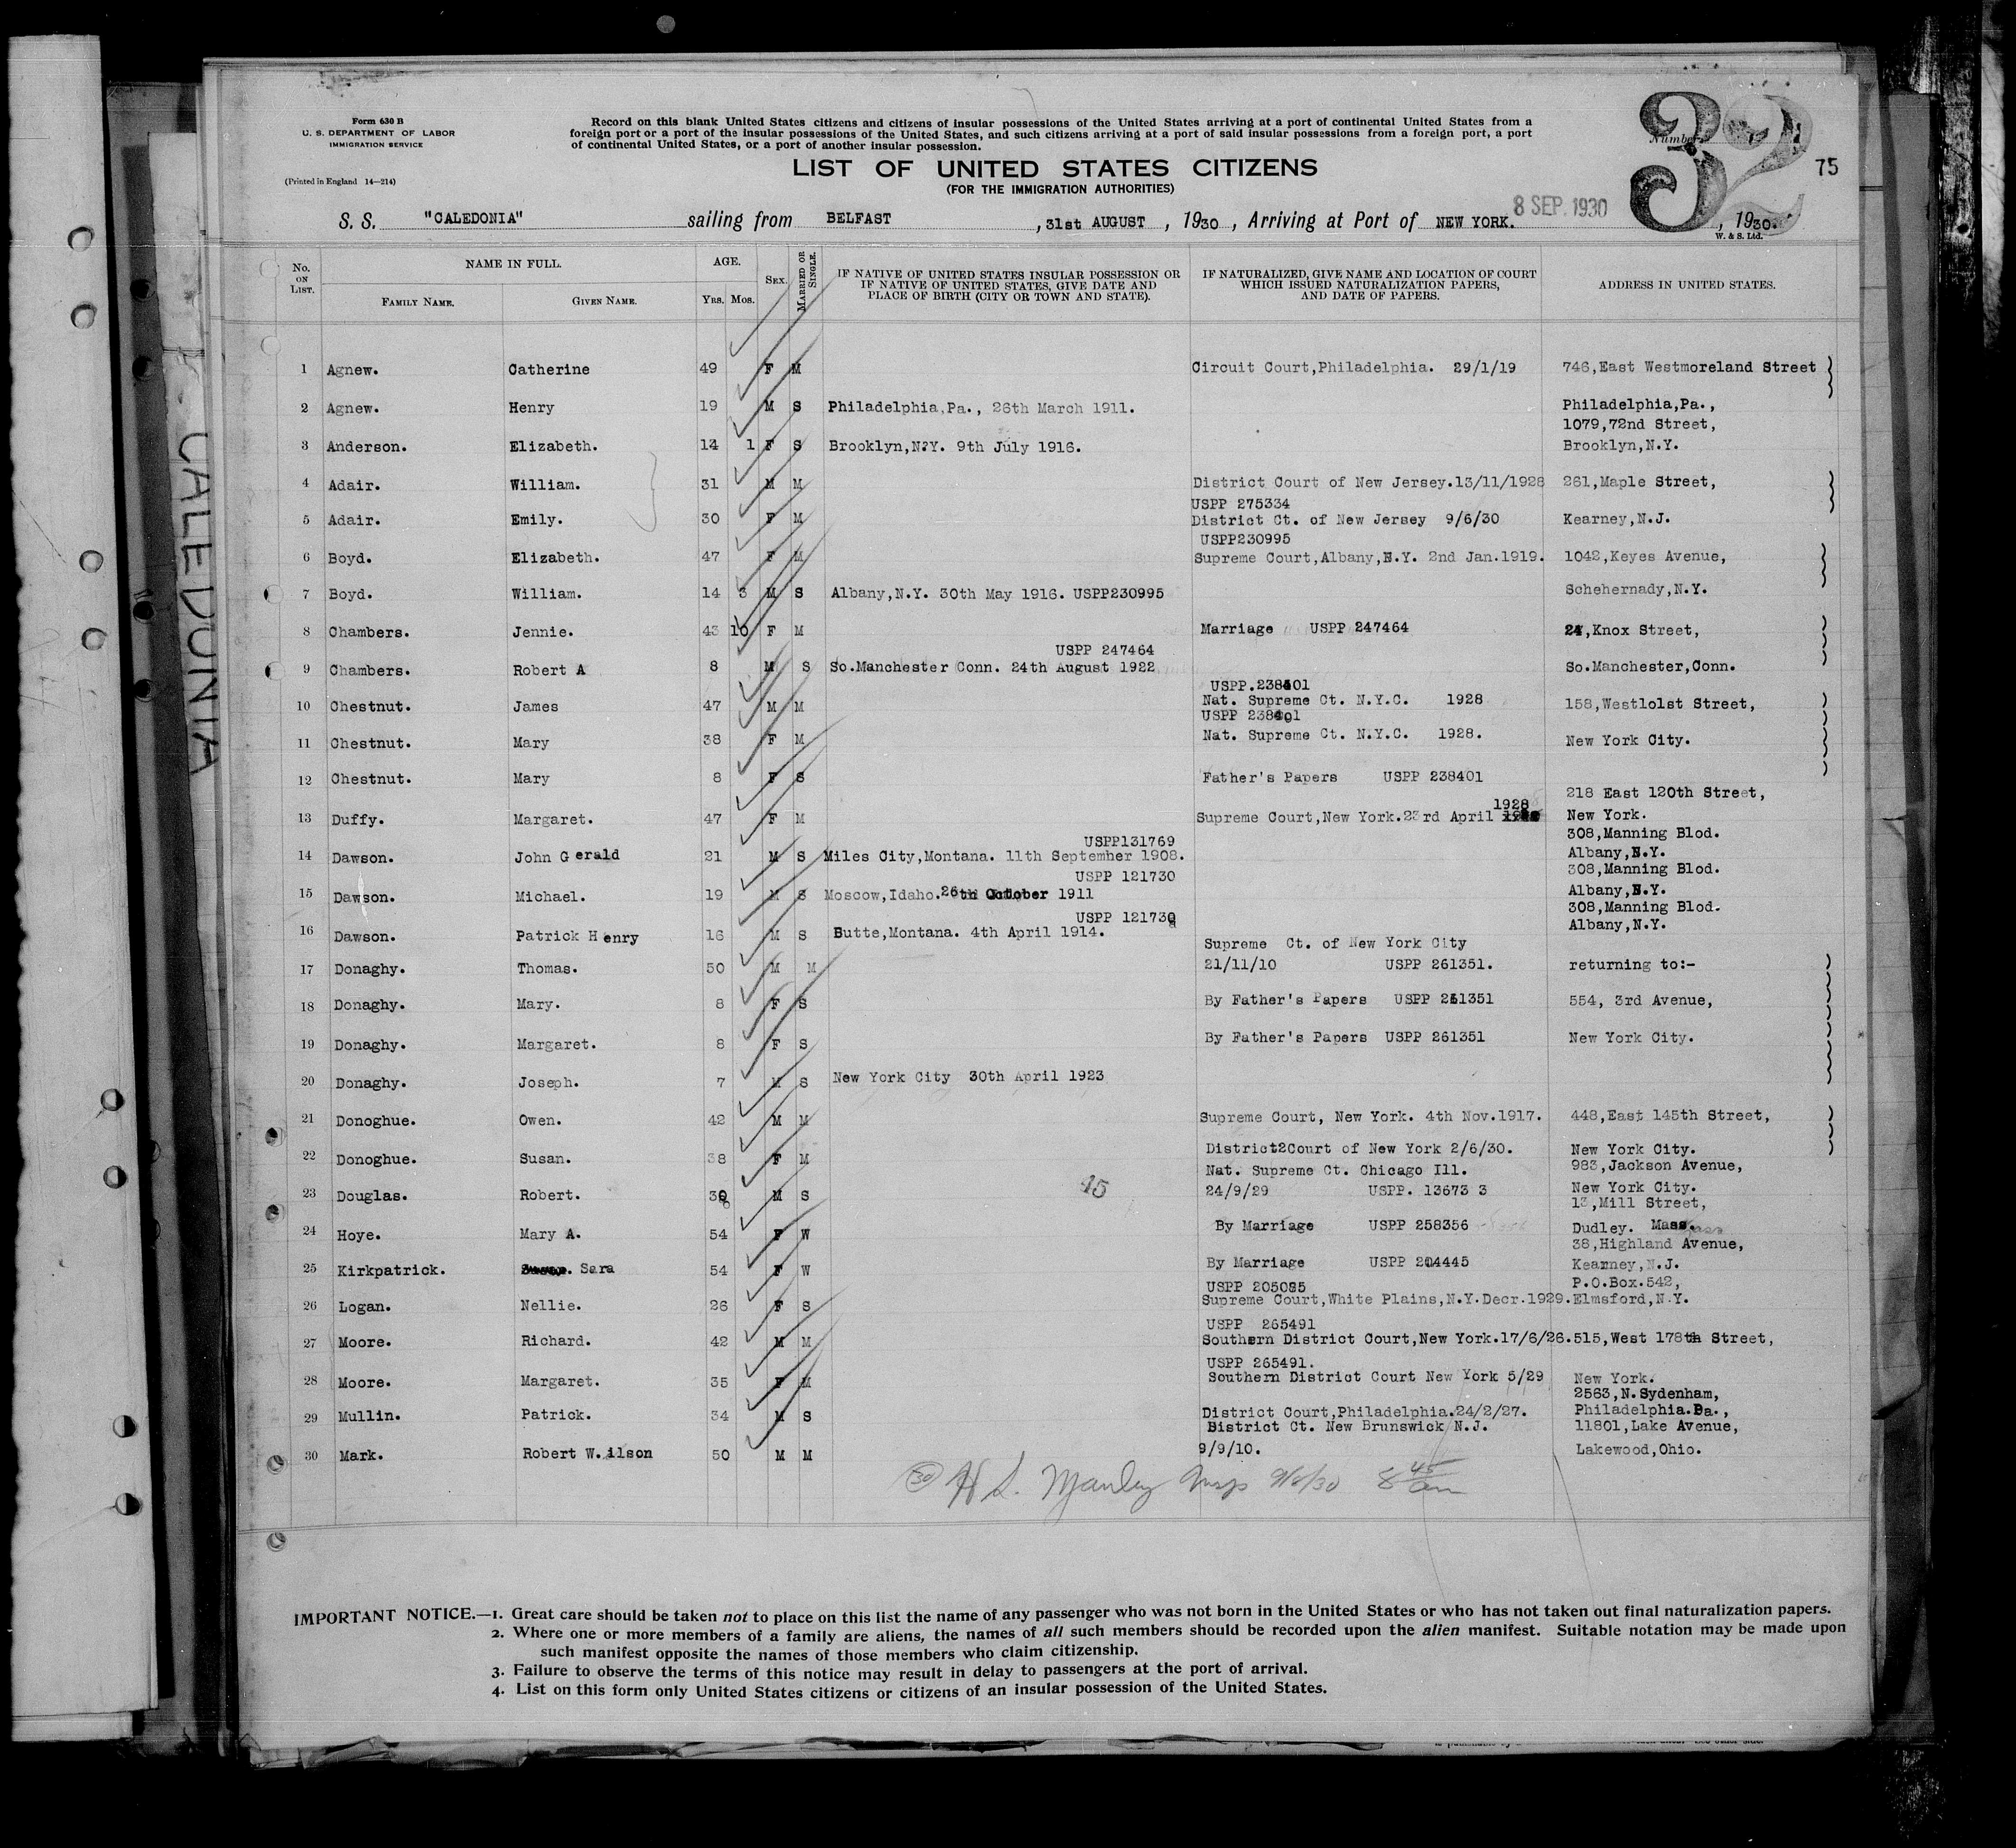 Form 630 B
U. S. DEPARTMENT OF LABOR
IMMIGRATION SERVICE
(Printed in England 14—214)
Record on this blank United States citizens and citizens of insular possessions of the United States arriving at a port of continental United States from a
foreign port or a port of the insular possessions of the United States, and such citizens arriving at a port of said insular possessions from a foreign port, a port
of continental United States, or a port of another insular possession.
Number
32
75
LIST OF UNITED STATES CITIZENS
(FOR THE IMMIGRATION AUTHORITIES)
S. S. "CALEDONIA" sailing from BELFAST , 31st AUGUST , 1930 , Arriving at Port of NEW YORK. 8 SEP. 1930 , 1930.
W. & S. Ltd.
CALEDONIA
No. ON LIST. NAME IN FULL. AGE. SEX. MARRIED OR SINGLE. IF NATIVE OF UNITED STATES INSULAR POSSESSION OR IF NATIVE OF UNITED STATES, GIVE DATE AND PLACE OF BIRTH (CITY OR TOWN AND STATE). IF NATURALIZED, GIVE NAME AND LOCATION OF COURT WHICH ISSUED NATURALIZATION PAPERS, AND DATE OF PAPERS. ADDRESS IN UNITED STATES.
FAMILY NAME. GIVEN NAME. YRS. MOS.
1 Agnew. Catherine 49 F M Circuit Court,Philadelphia. 29/1/19 746,East Westmoreland Street
2 Agnew. Henry 19 M S Philadelphia,Pa., 26th March 1911. Philadelphia,Pa.,
1079,72nd Street,
3 Anderson. Elizabeth. 14 1 F S Brooklyn,N.Y. 9th July 1916. Brooklyn,N.Y.
4 Adair. William. 31 M M District Court of New Jersey.13/11/1928 261,Maple Street,
USPP 275334
5 Adair. Emily. 30 F M District Ct. of New Jersey 9/6/30 Kearney,N.J.
USPP230995
6 Boyd. Elizabeth. 47 F M Supreme Court,Albany,N.Y. 2nd Jan.1919. 1042,Keyes Avenue,
7 Boyd. William. 14 3 M S Albany,N.Y. 30th May 1916. USPP230995 Schehernady,N.Y.
8 Chambers. Jennie. 43 10 F M Marriage USPP 247464 24,Knox Street,
USPP 247464
9 Chambers. Robert A 8 M S So.Manchester Conn. 24th August 1922 So.Manchester,Conn.
USPP.238401
10 Chestnut. James 47 M M Nat. Supreme Ct. N.Y.C. 1928 158,Westlolst Street,
USPP 238401
11 Chestnut. Mary 38 F M Nat. Supreme Ct. N.Y.C. 1928. New York City.
12 Chestnut. Mary 8 F S Father's Papers USPP 238401
218 East 120th Street,
1928
13 Duffy. Margaret. 47 F M Supreme Court,New York.23rd April New York.
308,Manning Blod.
USPP131769
14 Dawson. John Gerald 21 M S Miles City,Montana. 11th September 1908. Albany,N.Y.
USPP 121730 308,Manning Blod.
15 Dawson. Michael. 19 M S Moscow,Idaho.26th October 1911 Albany,N.Y.
USPP 121730 308,Manning Blod.
16 Dawson. Patrick Henry 16 M S Butte,Montana. 4th April 1914. Albany,N.Y.
Supreme Ct. of New York City
17 Donaghy. Thomas. 50 M M 21/11/10 USPP 261351. returning to:-
18 Donaghy. Mary. 8 F S By Father's Papers USPP 261351 554, 3rd Avenue,
19 Donaghy. Margaret. 8 F S By Father's Papers USPP 261351 New York City.
20 Donaghy. Joseph. 7 M S New York City 30th April 1923
21 Donoghue. Owen. 42 M M Supreme Court, New York. 4th Nov.1917. 448,East 145th Street,
22 Donoghue. Susan. 38 F M District2Court of New York 2/6/30. New York City.
Nat. Supreme Ct. Chicago Ill. 983,Jackson Avenue,
23 Douglas. Robert. M S 45 24/9/29 USPP. 13673 3 New York City.
13,Mill Street,
24 Hoye. Mary A. 54 F W By Marriage USPP 258356 Dudley. Mass.
38,Highland Avenue,
25 Kirkpatrick. Sara 54 F W By Marriage USPP 204445 Kearney,N.J.
USPP 205085 P.O.Box.542,
26 Logan. Nellie. 26 F S Supreme Court,White Plains,N.Y.Decr.1929. Elmsford,N.Y.
USPP 265491
27 Moore. Richard. 42 M M Southern District Court,New York.17/6/26. 515,West 178th Street,
USPP 265491.
28 Moore. Margaret. 35 F M Southern District Court New York 5/29 New York.
2563,N.Sydenham,
29 Mullin. Patrick. 34 M S District Court,Philadelphia.24/2/27. Philadelphia.Pa.,
District Ct. New Brunswick N.J. 11801,Lake Avenue,
30 Mark. Robert W.ilson 50 M M 9/9/10. Lakewood,Ohio.
30 H S. Manley Insp 9/8/30 8 45 am
IMPORTANT NOTICE.—1. Great care should be taken not to place on this list the name of any passenger who was not born in the United States or who has not taken out final naturalization papers.
2. Where one or more members of a family are aliens, the names of all such members should be recorded upon the alien manifest. Suitable notation may be made upon
such manifest opposite the names of those members who claim citizenship.
3. Failure to observe the terms of this notice may result in delay to passengers at the port of arrival.
4. List on this form only United States citizens or citizens of an insular possession of the United States.